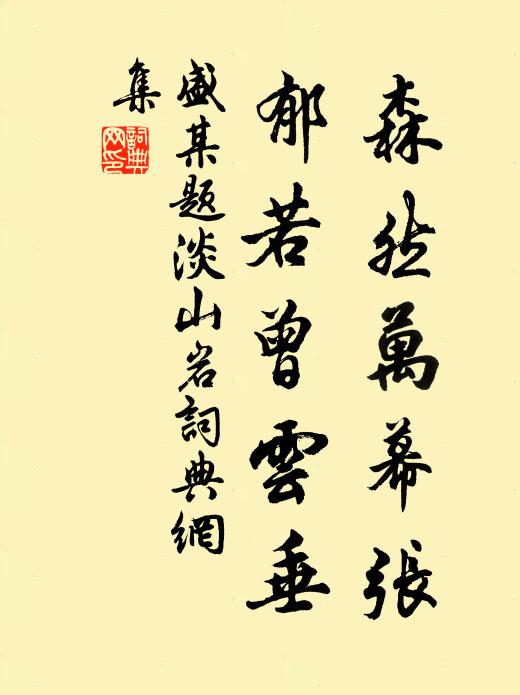 森然萬幕張
郁若曾雲垂
盛某題淡山岩詞典網
集
詞典網印